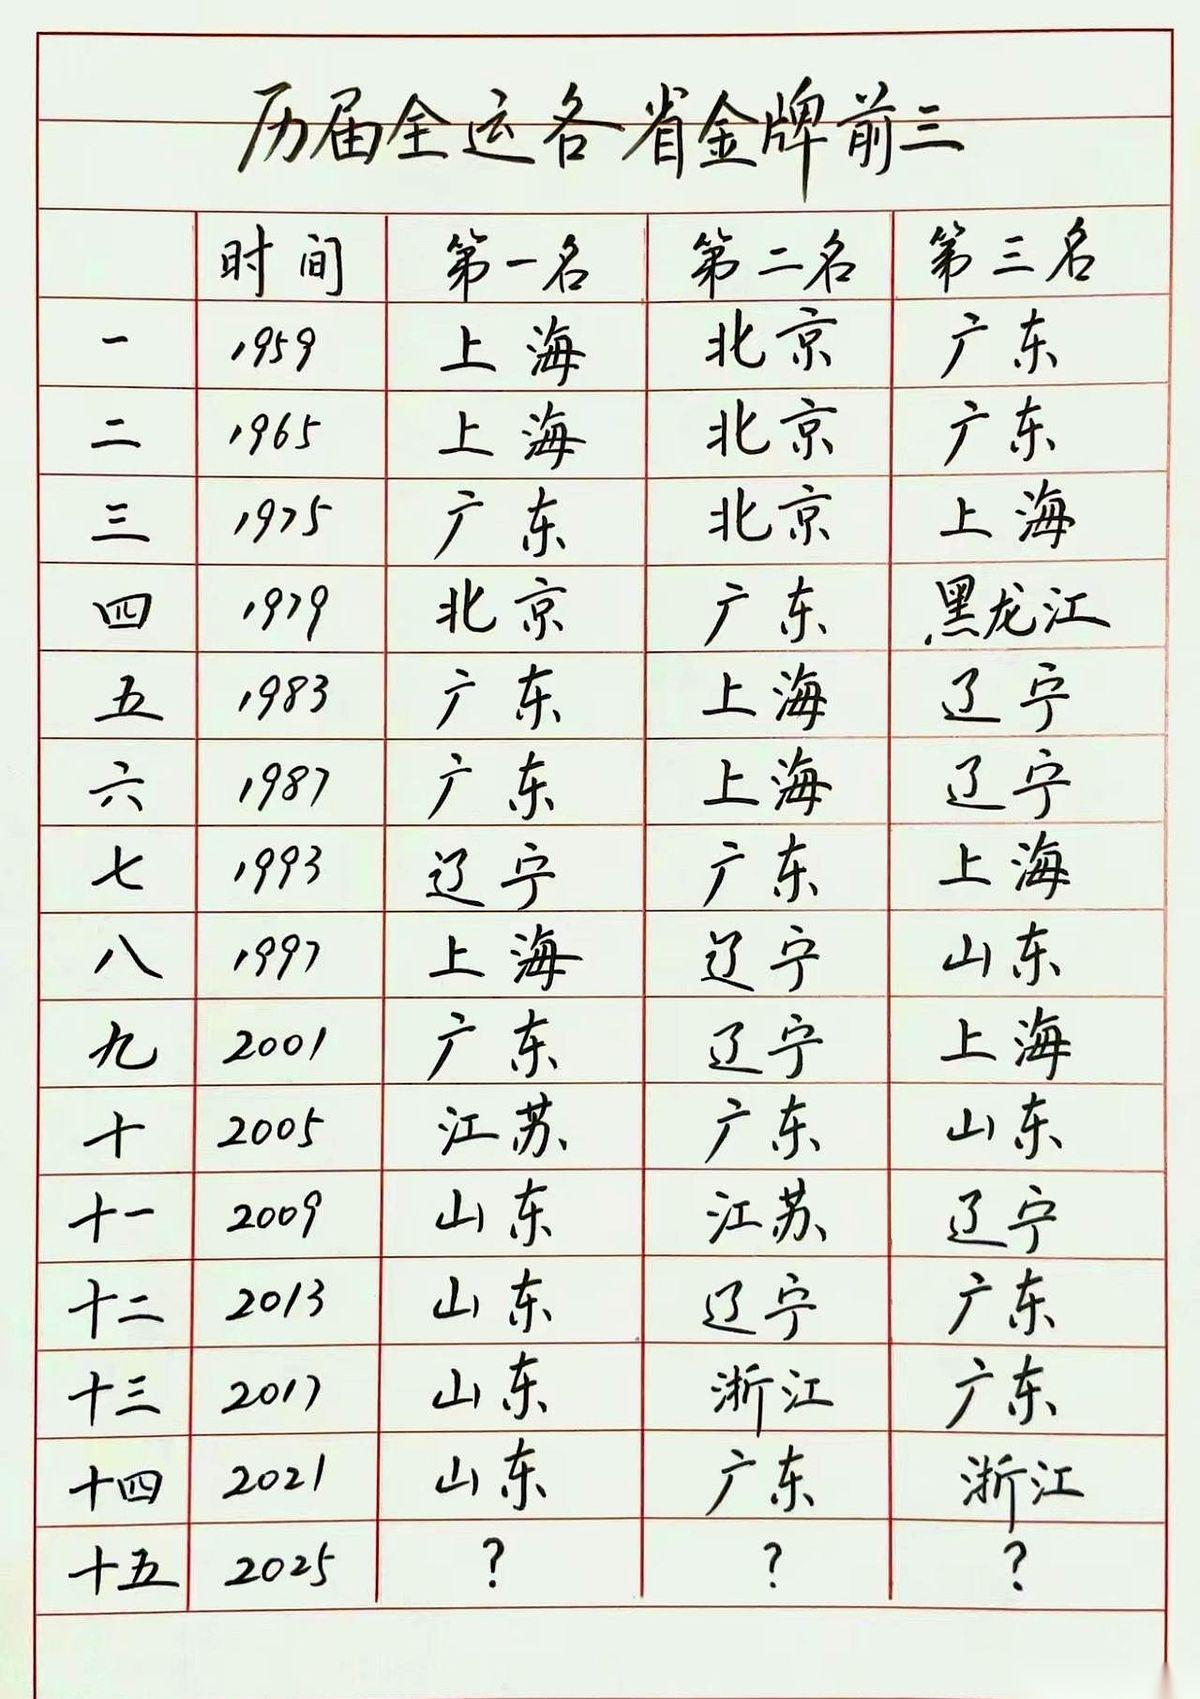 历届全运各省金牌前三
时间 第一名 第二名 第三名
一 1959 上海 北京 广东
二 1965 上海 北京 广东
三 1975 广东 北京 上海
四 1979 北京 广东 黑龙江
五 1983 广东 上海 辽宁
六 1987 广东 上海 辽宁
七 1993 辽宁 广东 上海
八 1997 上海 辽宁 山东
九 2001 广东 辽宁 上海
十 2005 江苏 广东 山东
十一 2009 山东 江苏 辽宁
十二 2013 山东 辽宁 广东
十三 2017 山东 浙江 广东
十四 2021 山东 广东 浙江
十五 2025 ? ? ?